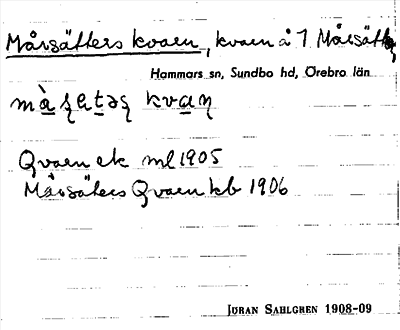 Mårsätters kvaen, kvaen å 1 Mårsätter
Hammars sn, Sundbo hd, Örebro län
kvan
Qvaen ek ml 1905
Mårsäters Qvaen kb 1906
JÖRAN SAHLGREN 1908-09